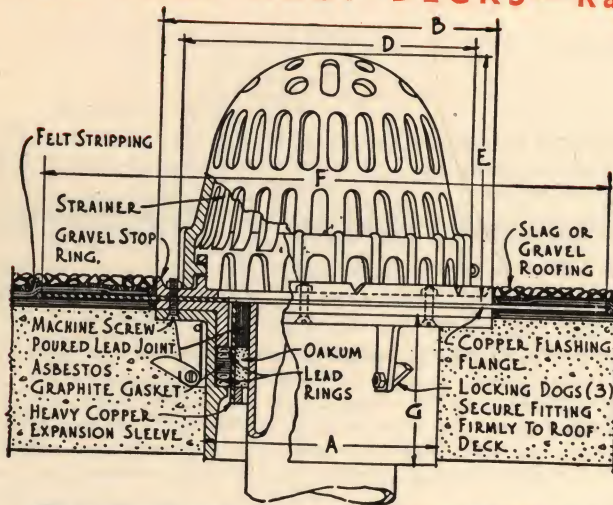 DECKS
B
D
E
FELT STRIPPING
F
STRAINER
GRAVEL STOP
RING.
SLAG OR
GRAVEL
ROOFING
MACHINE SCREW
POURED LEAD JOINT
ASBESTOS
GRAPHITE GASKET
HEAVY COPPER
EXPANSION SLEEVE
OAKUM
LEAD
RINGS
COPPER FLASHING
FLANGE
LOCKING DOGS (3)
SECURE FITTING
FIRMLY TO ROOF
DECK.
G
A